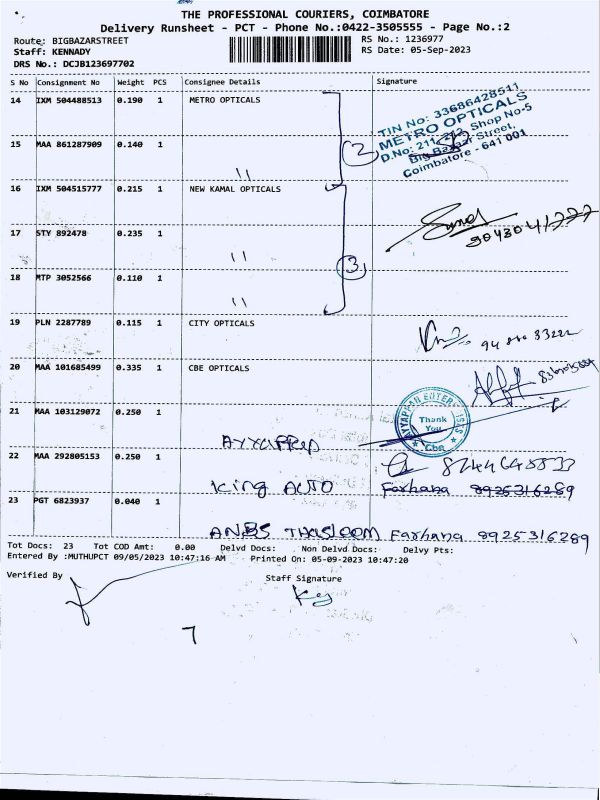 THE PROFESSIONAL COURIERS, COIMBATORE
Delivery Runsheet - PCT - Phone No.:0422-3505555 - Page No.:2
Route: BIGBAZARSTREET RS No.: 1236977
Staff: KENNADY RS Date: 05-Sep-2023
DRS No.: DCJB123697702
S No Consignment No Weight PCS Consignee Details Signature
14 IXM 504488513 0.190 1 METRO OPTICALS
TIN No: 33686428511
METRO OPTICALS
D.No: 211-212, Shop No-5
Big Bazaar Street,
Coimbatore - 641 001
15 MAA 861287909 0.140 1 " 2
16 IXM 504515777 0.215 1 NEW KAMAL OPTICALS
17 STY 892478 0.235 1 "
3
18 MTP 3052566 0.110 1 "
19 PLN 2287789 0.115 1 CITY OPTICALS
20 MAA 101685499 0.335 1 CBE OPTICALS
21 MAA 103129072 0.250 1
AYYAPPAN ENTERPRISES
Thank
You
Cbe
22 MAA 292805153 0.250 1
King AUTO Farhana 8925316289
23 PGT 6823937 0.040 1
ANBS THASLEEM Farhana 8925316289
Tot Docs: 23 Tot COD Amt: 0.00 Delvd Docs: Non Delvd Docs: Delvy Pts:
Entered By :MUTHUPCT 09/05/2023 10:47:16 AM Printed On: 05-09-2023 10:47:20
Verified By Staff Signature
7